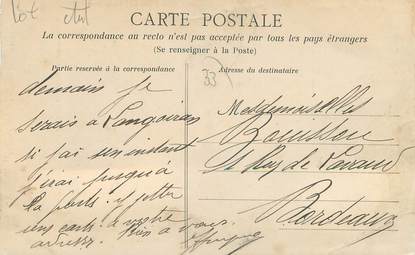 CARTE POSTALE
La correspondance au recto n'est pas acceptée par tous les pays étrangers
(Se renseigner à la Poste)
Partie réservée à la correspondance
Adresse du destinataire
33
demain je
serais a Langoiran
si j'ai un instant
j'irai jusqu'à
la poste jetter
une carte a votre
adresse. Bien a vous
Mesdemoiselles
Bouisson
Rue de
Bordeaux